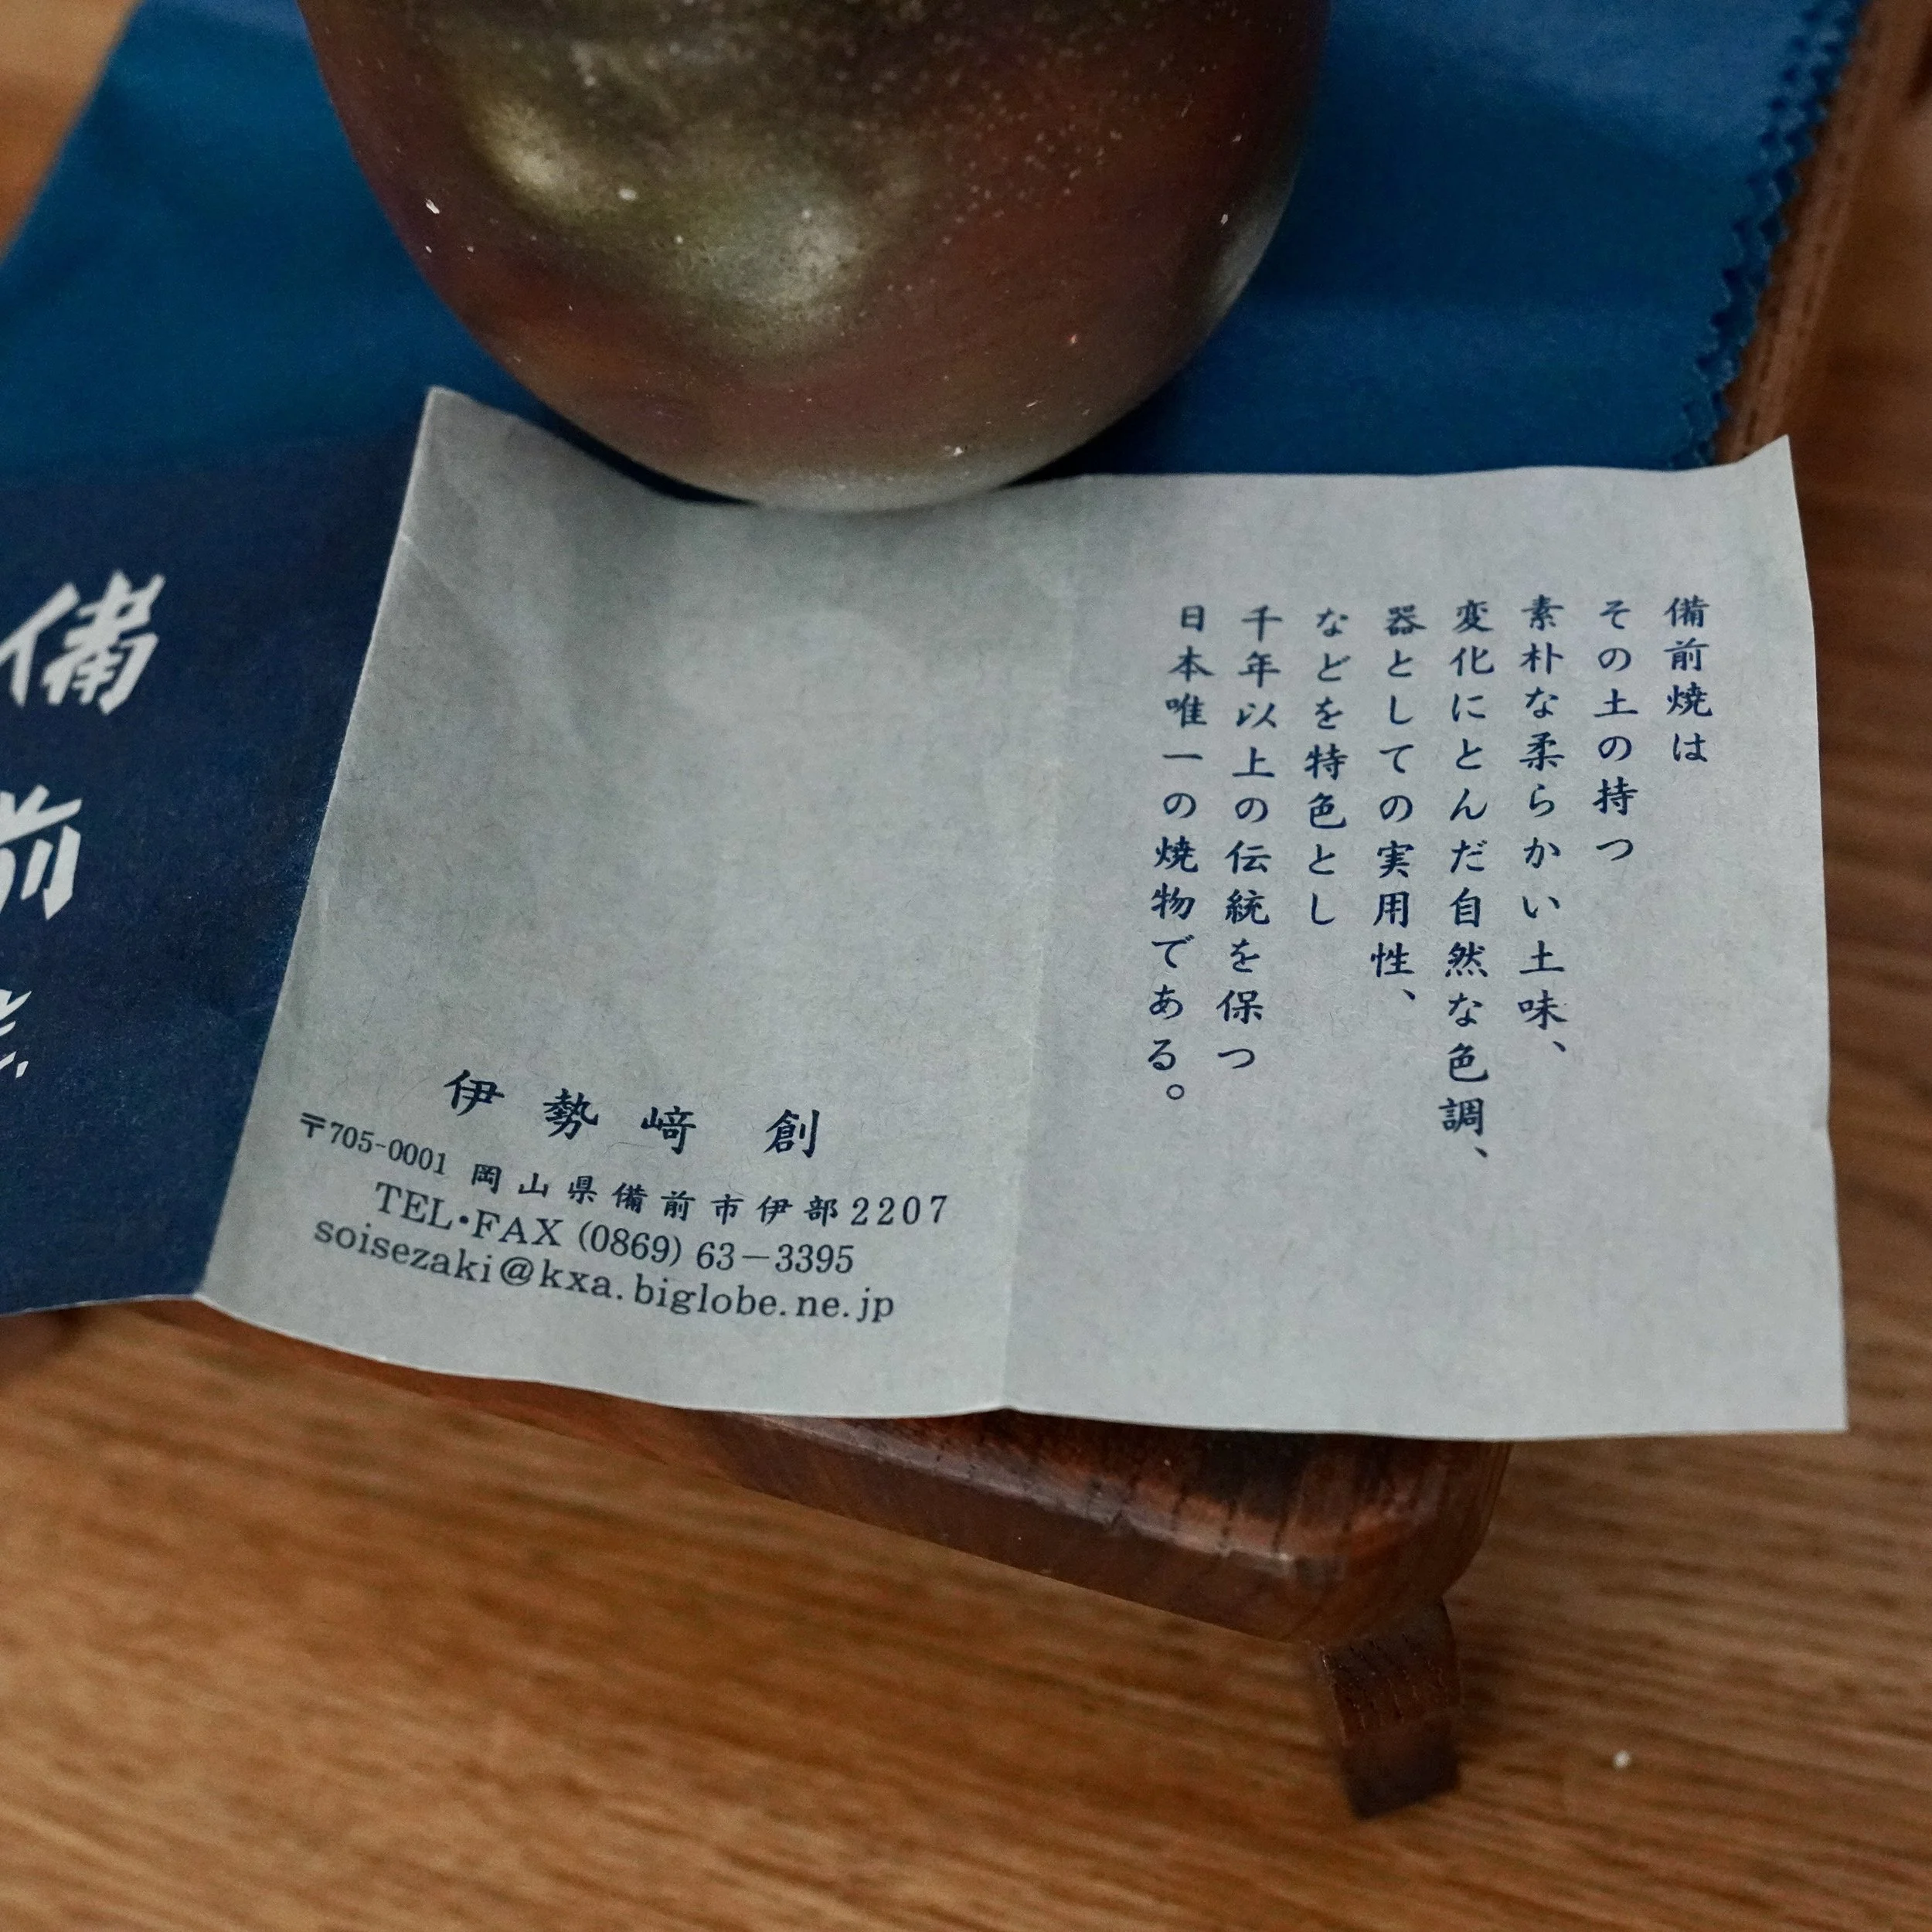 備前焼は
その土の持つ
素朴な柔らかい土味、
変化にとんだ自然な色調、
器としての実用性、
などを特色とし
千年以上の伝統を保つ
日本唯一の焼物である。
伊勢﨑 創
〒705-0001 岡山県備前市伊部2207
TEL・FAX (0869) 63－3395
soisezaki@kxa.biglobe.ne.jp
備前